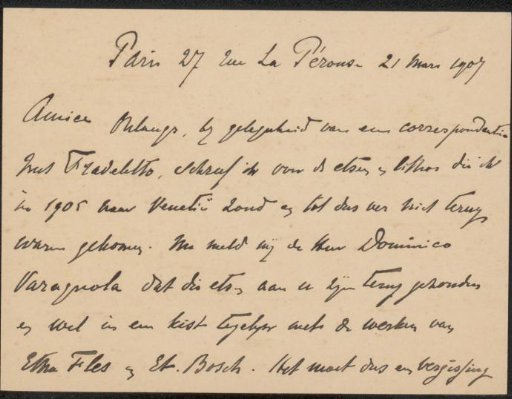 Paris 27 rue La Pérouse 21 Mars 1907
Amice Onlangs, bij gelegenheid van een correspondentie
met Fradeletto, schreef ik over de etsen en lithos die ik
in 1905 naar Venetië zond en tot dus ver niet terug
waren gekomen. Nu meld mij de Heer Dominico
Varagnola dat die etsen aan u zijn terug gezonden
en wel in een kist tegelijk met de werken van
Etha Fles en Et. Bosch. Het moet dus een vergissing